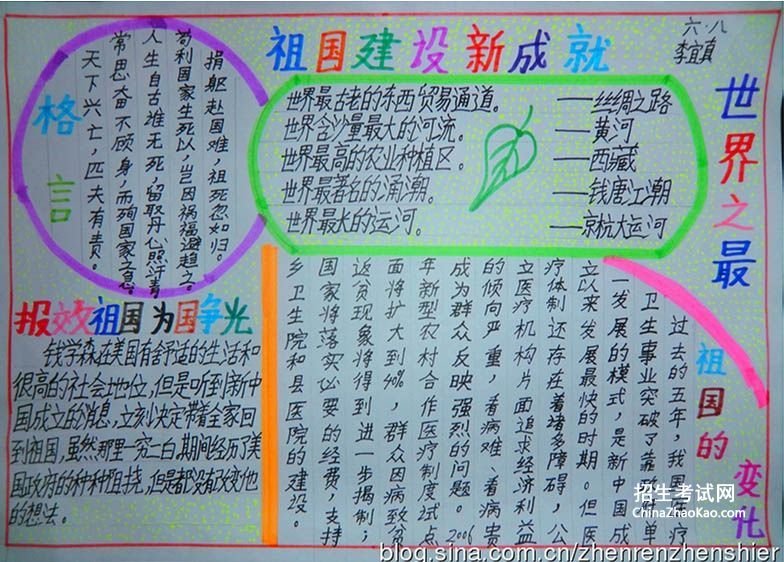 祖国建设新成就
六.八
李宜真
格言
捐躯赴国难，视死忽如归。
苟利国家生死以，岂因祸福避趋之。
人生自古谁无死，留取丹心照汗青
常思奋不顾身，而殉国家之急。
天下兴亡，匹夫有责。
世界最古老的东西贸易通道。——丝绸之路
世界含沙量最大的河流。——黄河
世界最高的农业种植区。——西藏
世界最著名的涌潮。——钱唐江潮
世界最长的运河。——京杭大运河
世界之最
报效祖国为国争光
钱学森在美国有舒适的生活和
很高的社会地位，但是听到新中
国成立的消息，立刻决定带着全家回
到祖国，虽然那里一穷二白，期间经历了美
国政府的种种阻挠，但是都没有改变他
的想法。
祖国的变化
过去的五年，我国医疗
卫生事业突破了靠单
一发展的模式，是新中国成
立以来发展最快的时期。但医
疗体制还存在着诸多障碍，公
立医疗机构片面追求经济利益
的倾向严重，看病难、看病贵
成为群众反映强烈的问题。2006
年新型农村合作医疗制度试点
面将扩大到40%，群众因病致贫
返贫现象将得到进一步揭制；
国家将落实必要的经费，支持
乡卫生院和县医院的建设。
招生考试网
ChinaZhaoKao.com
blog.sina.com.cn/zhenrenzhenshier